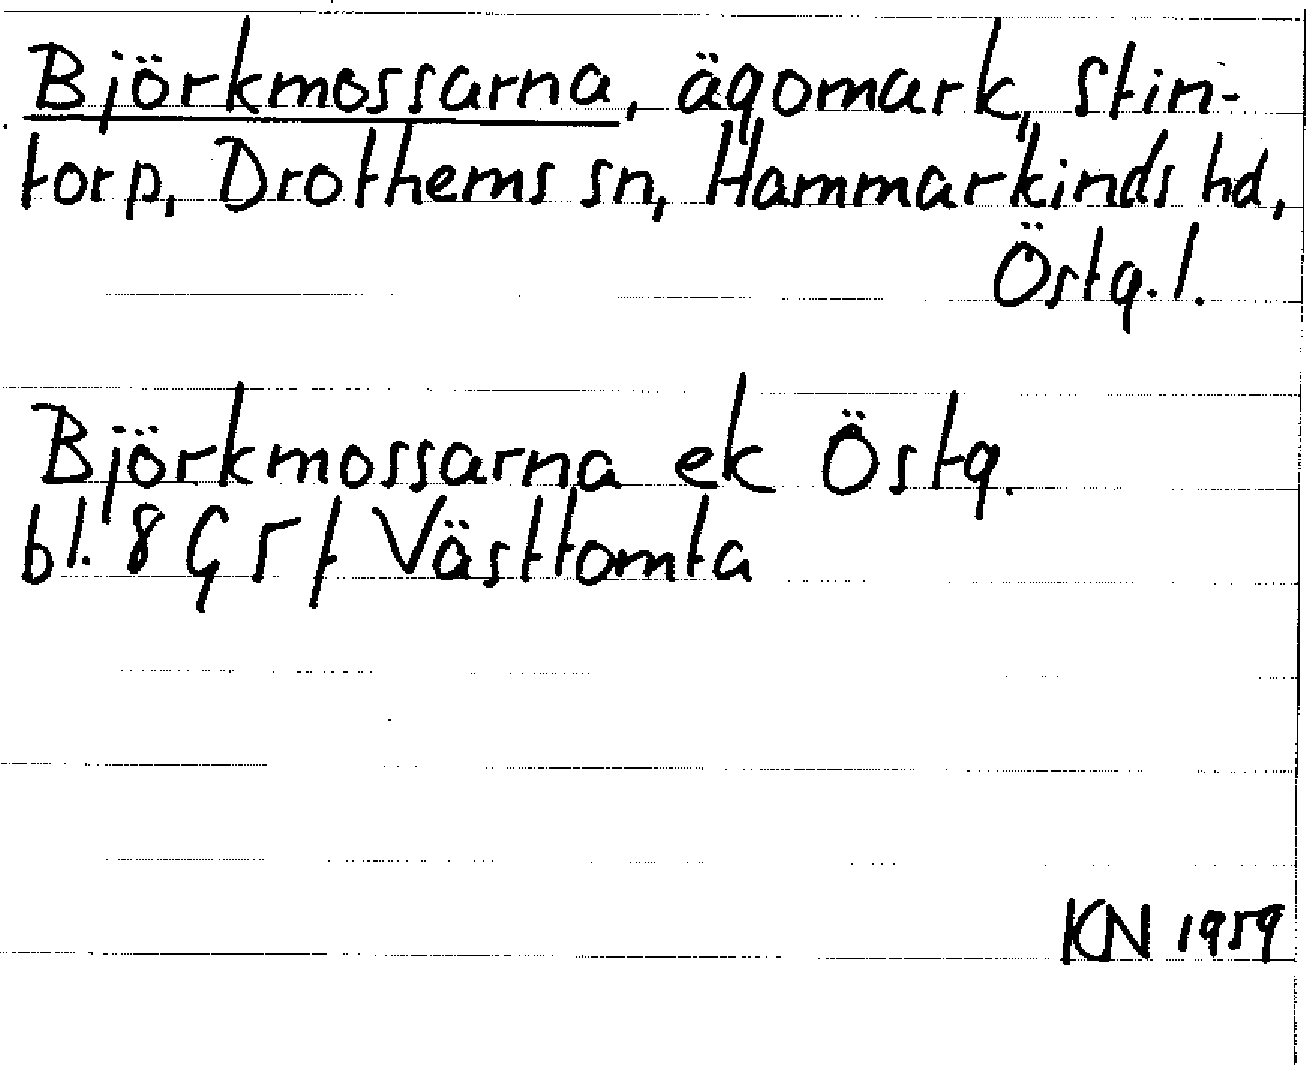 Björkmossarna, ägomark, Stin-
torp, Drothems sn, Hammarkinds hd,
Östg. l.
Björkmossarna ek Östg.
bl. 8 G 5 f Västtomta
KN 1959